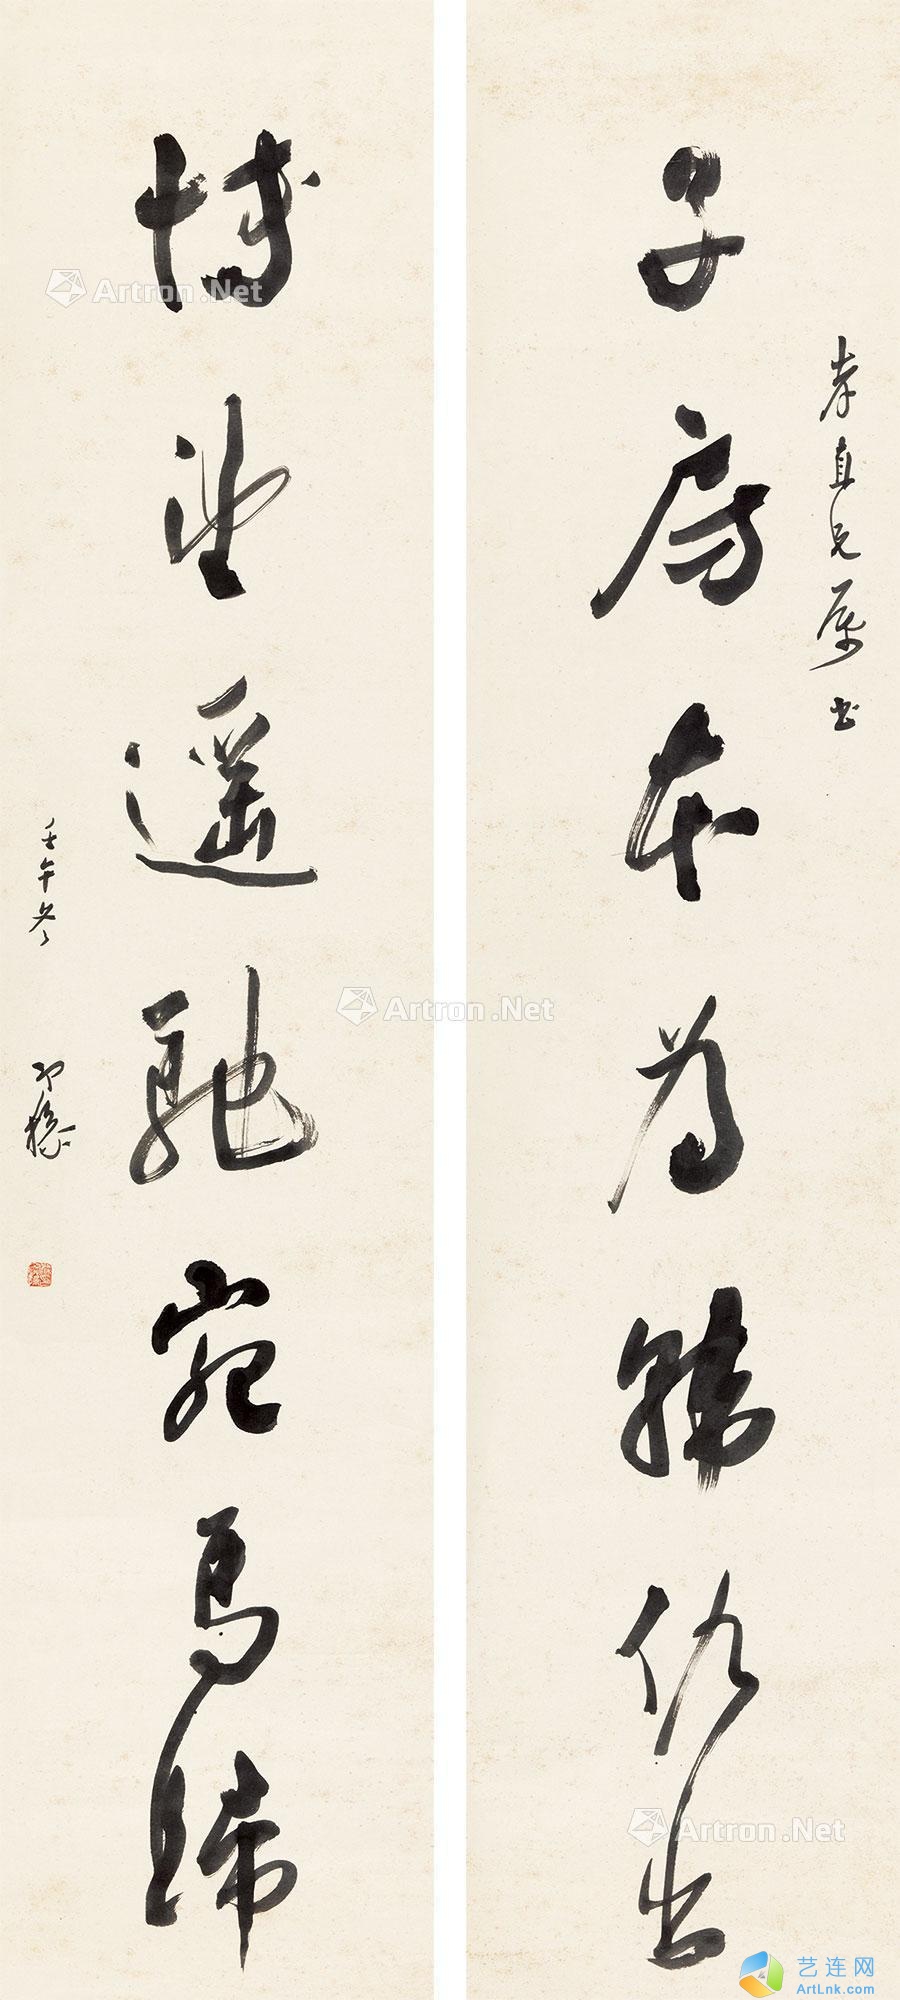 孝直兄属书
子房本为韩仇出
博望遥驰宛马归
壬午冬
Artron.Net
Artron.Net
Artron.Net
艺连网
ArtLnk.com